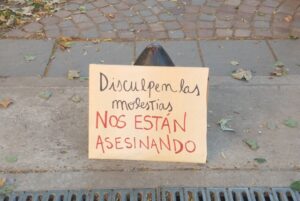 Disculpen las
molestias
NOS ESTÁN
ASESINANDO